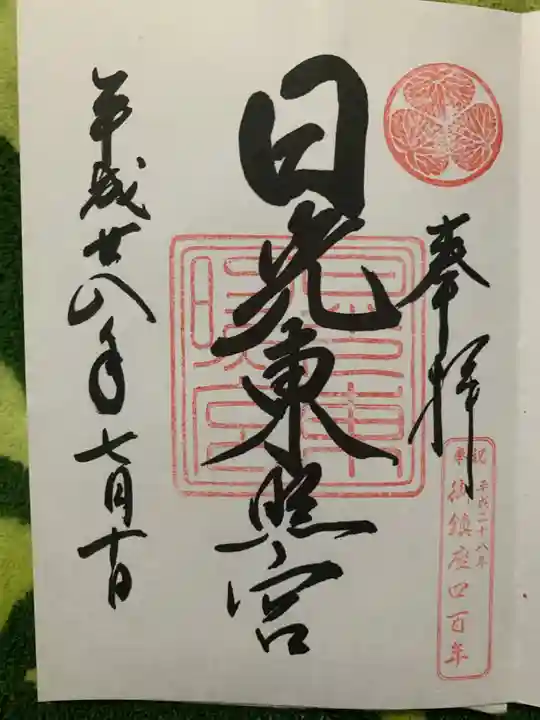 奉拝
祝
奉
平成二十八年
御鎮座四百年
日光東照宮
東照宮
平成廿八年七月十日